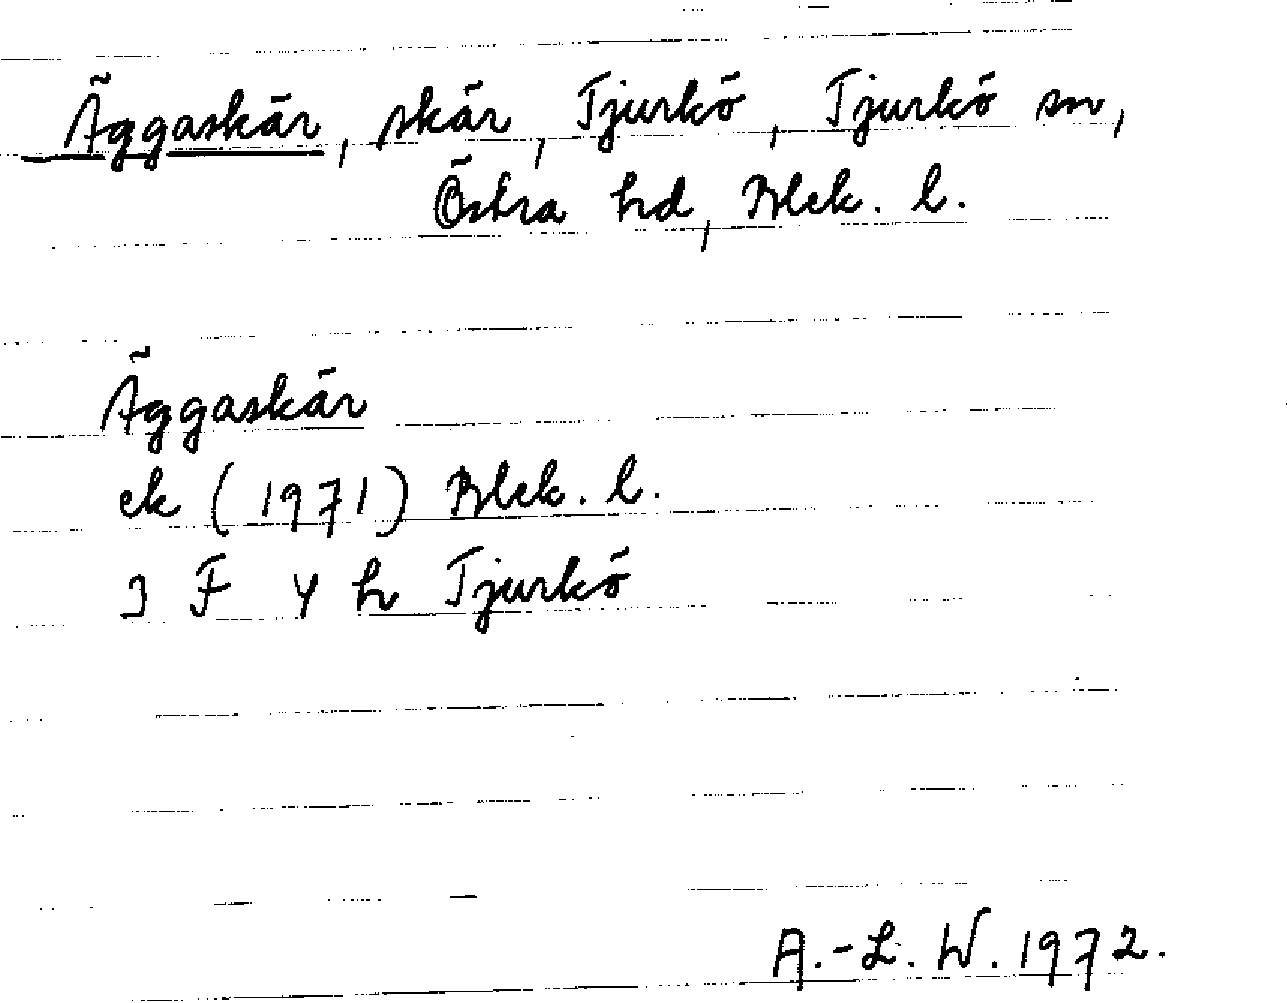 Äggaskär, skär, Tjurkö, Tjurkö sn,
Östra hd, Blek. l.
Äggaskär
ek (1971) Blek. l.
3 F 4 h Tjurkö
A.-L. W. 1972.